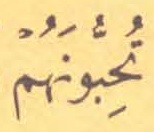 تُحِبُّونَهُمْ